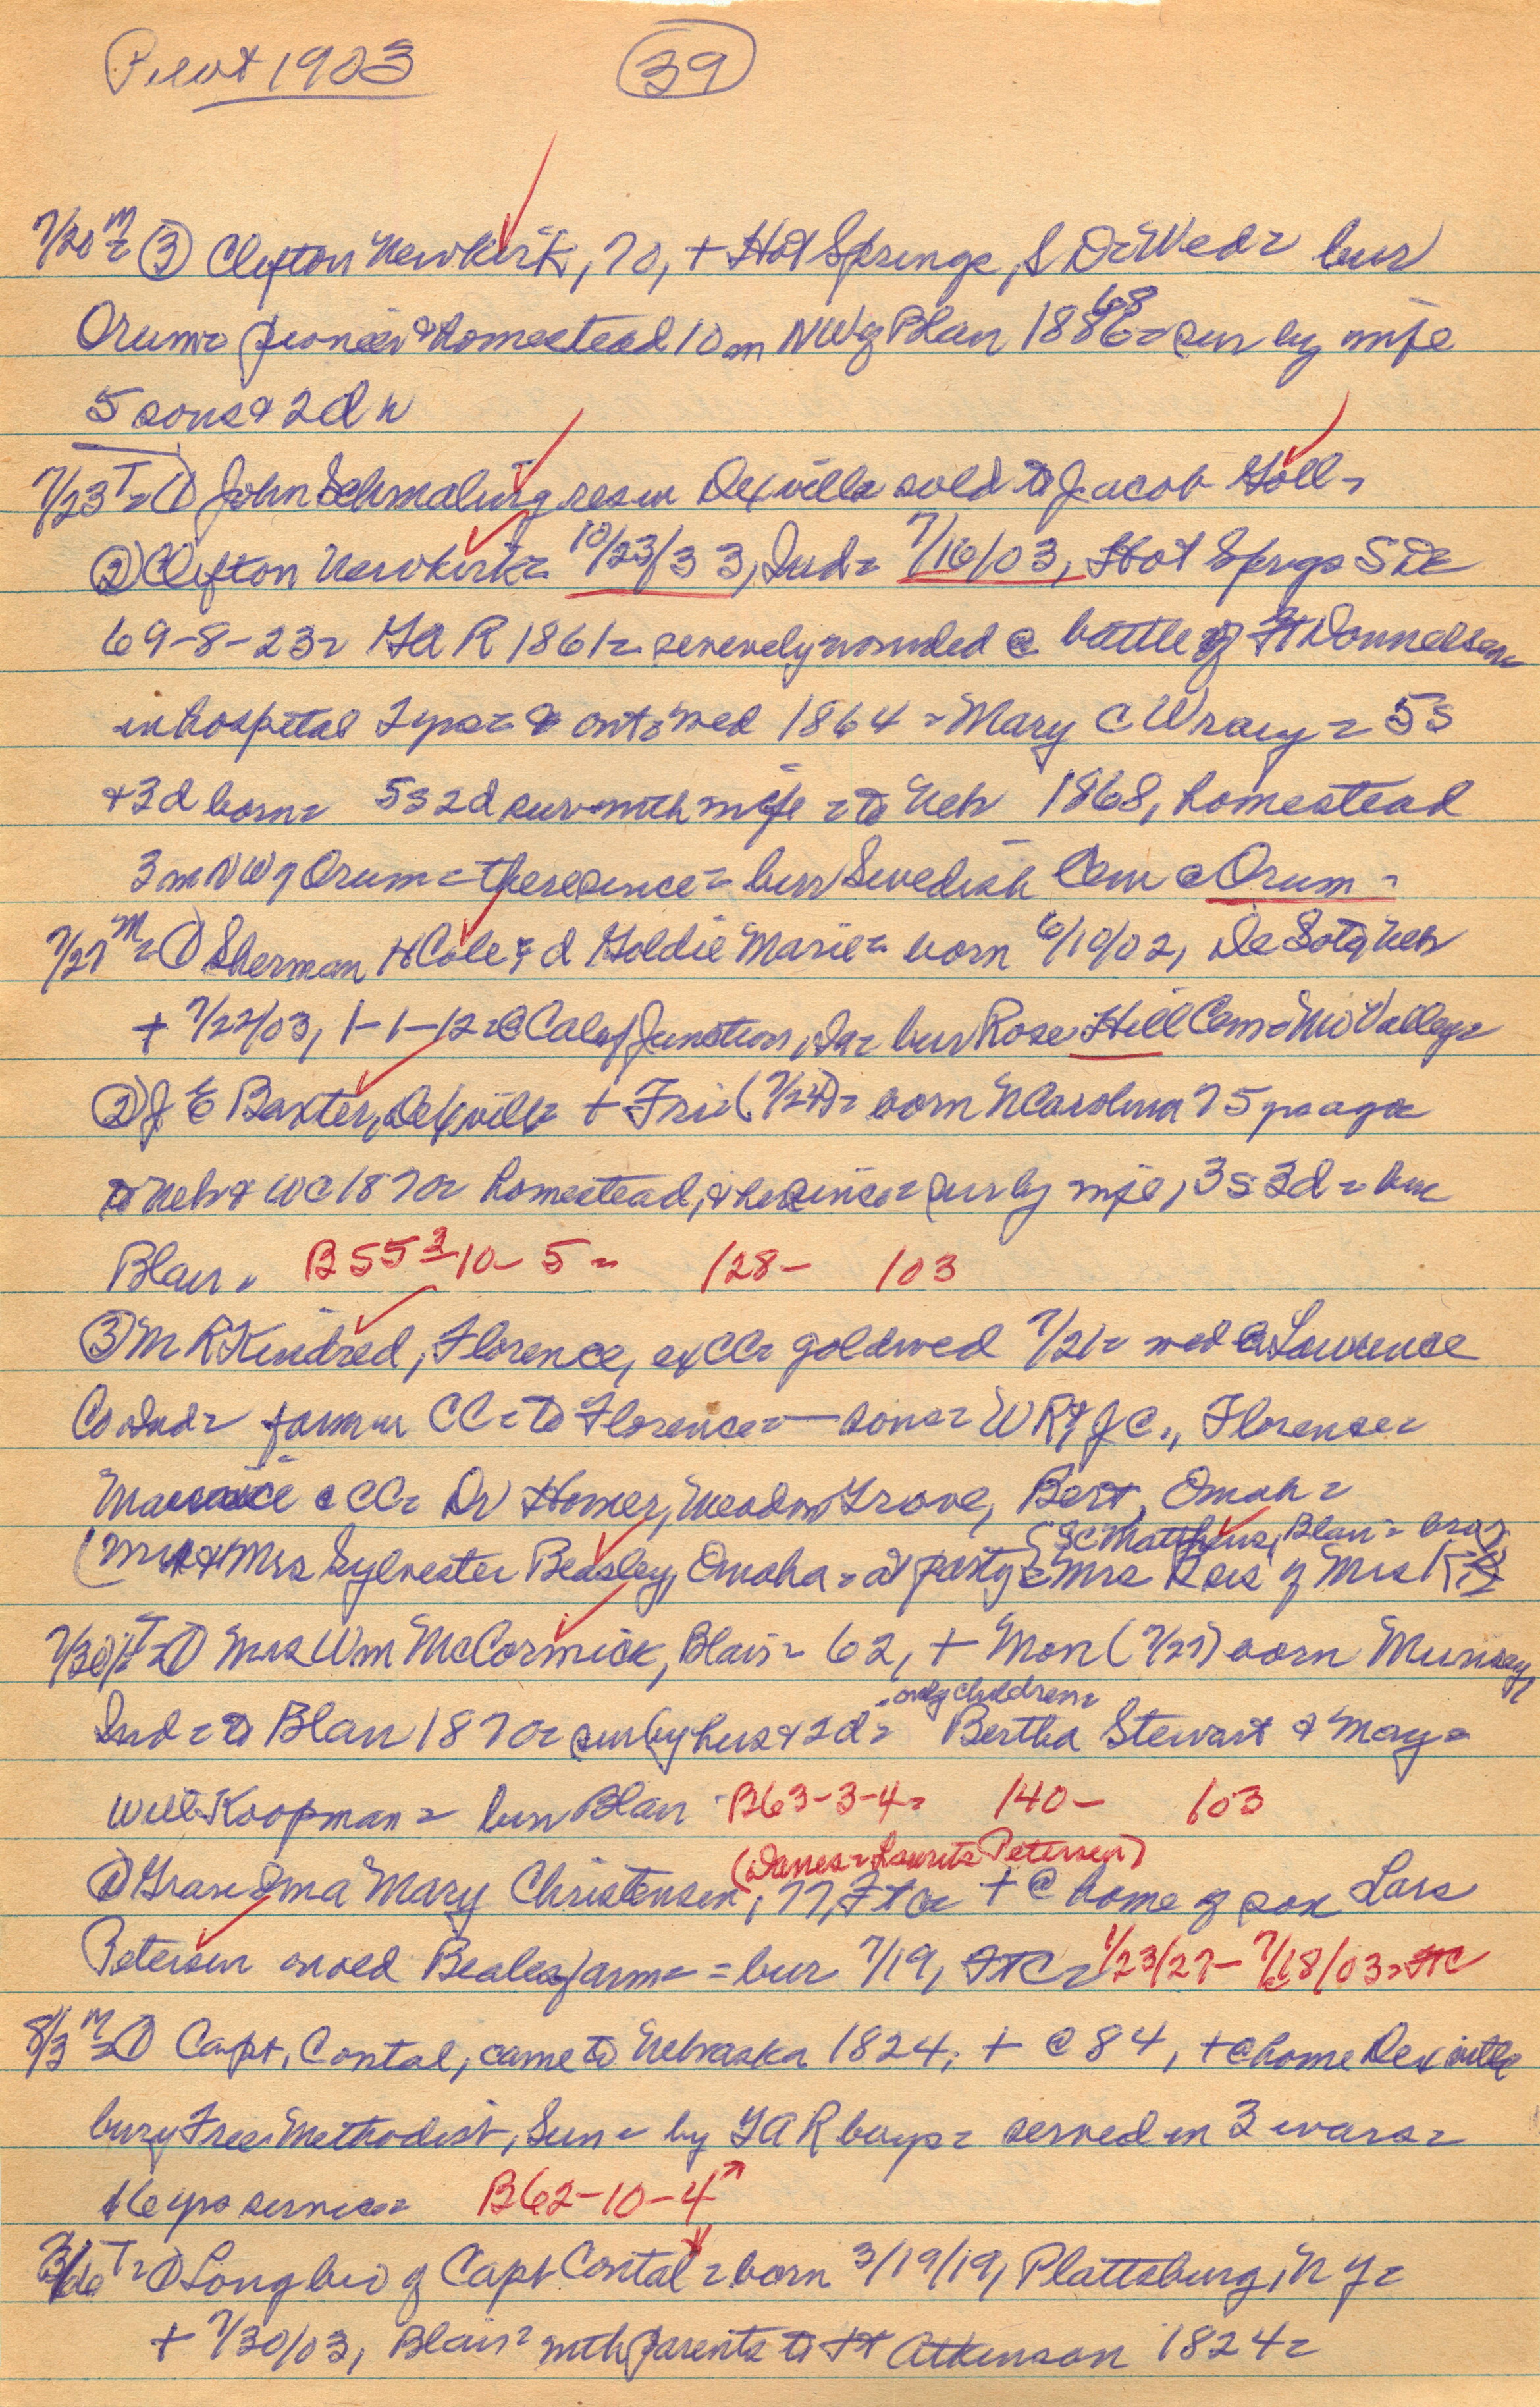 Pilot 1903 39
7/20 M = ③ Clifton Newkirk, 70, + Hot Springs, S D = Wed = bur
Orum = pioneer & homestead 10 m NW of Blair 1868 = sur by wife
5 sons & 2 d
7/23 T = ① John Schmaling res in Dexville sold to Jacob Goll =
② Clifton Newkirk = 10/23/33, Ind = 7/16/03, Hot Sprgs S D =
69-8-23 = GAR 1861 = severely wounded @ battle of Ft Donnelson =
in hospital 2 yrs = & out = wed 1864 = Mary C Wray = 5s
& 3d born = 5s 2d sur with wife = to Neb 1868, homestead
3 m NW of Orum = there since = bur Swedish Cem @ Orum =
7/27 M = ① Sherman H Cole & d Goldie Marie = born 6/10/02, De Soto, Neb
+ 7/22/03, 1-1-12 = @ Calif Junction, Ia = bur Rose Hill Cem = Mo Valley =
② J E Baxter, Dexville + Fri (7/24) = born N Carolina 75 yrs ago =
to Neb & WC 1870 = homestead, & here since = sur by wife, 3s 3d = bur
Blair = B 55 3-10-5 = 128- 103
③ M R Kindred, Florence, ex CC = gold wed 7/21 = wed @ Lawrence
Co Ind = farm in CC = to Florence = sons = W R & J C., Florence =
Maurice @ CC = Dr Homer, Meadow Grove, Bert, Omah =
(Mr & Mrs Sylvester Beasley, Omaha = at party & Mrs B sis of Mrs K
S C Matthews, Blair = bro
7/30 T = ① Mrs Wm McCormick, Blair = 62, + Mon (7/27) born
Ind = to Blair 1870 = sur by hus & 2d = only children = Bertha Stewart & May =
Will Koopman = bur Blair B63-3-4 = 140- 103
(Danes = Laurits Petersen)
② Grandma Mary Christensen, 77, FtC = + @ home of son Lars
Petersen on old Beales farm = = bur 7/19, FTC = 1/23/27 - 7/18/03 = FTC
8/3 M = ① Capt. Contal, came to Nebraska 1824, + @ 84, + @ home Dexville
bury Free Methodist, Sun = by GAR boys = served in 3 wars =
16 yrs service = B62-10-4
8/6 T = ① Long bio of Capt Contal = born 3/19/19, Plattsburg, N Y =
+ 7/30/03, Blair = with parents to Ft Atkinson 1824 =